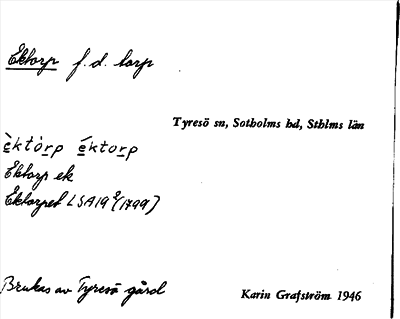 Ektorp f. d. torp
Tyresö sn, Sotholms hd, Sthlms län
èktòrp éktorp
Ektorp ek
Ektorpet LSA19⁹(1799)
Brukas av Tyresö gård
Karin Grafström 1946